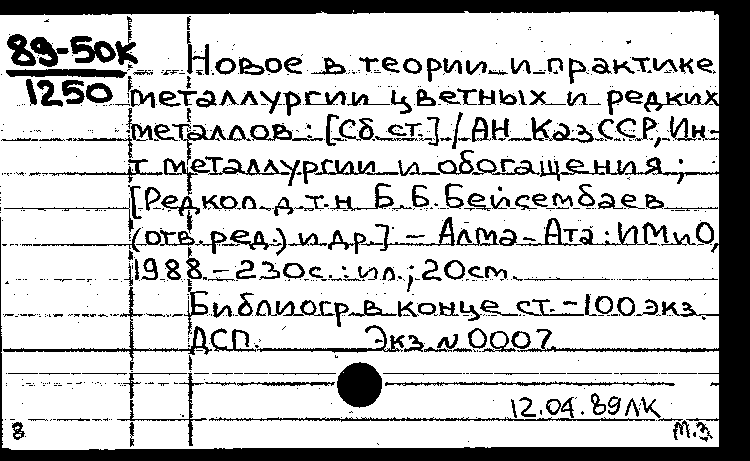 89-50К
1250
Новое в теории и практике
металлургии цветных и редких
металлов : [Сб. ст.] / АН КазССР, Ин-
т металлургии и обогащения ;
[Редкол. д.т.н Б.Б.Бейсембаев
(отв. ред.) и др.] – Алма-Ата : ИМиО,
1988. – 230с. : ил.; 20см.
Библиогр. в конце ст. – 100 экз.
ДСП. Экз. N 0007.
12.04.89ЛК
8 М.З.